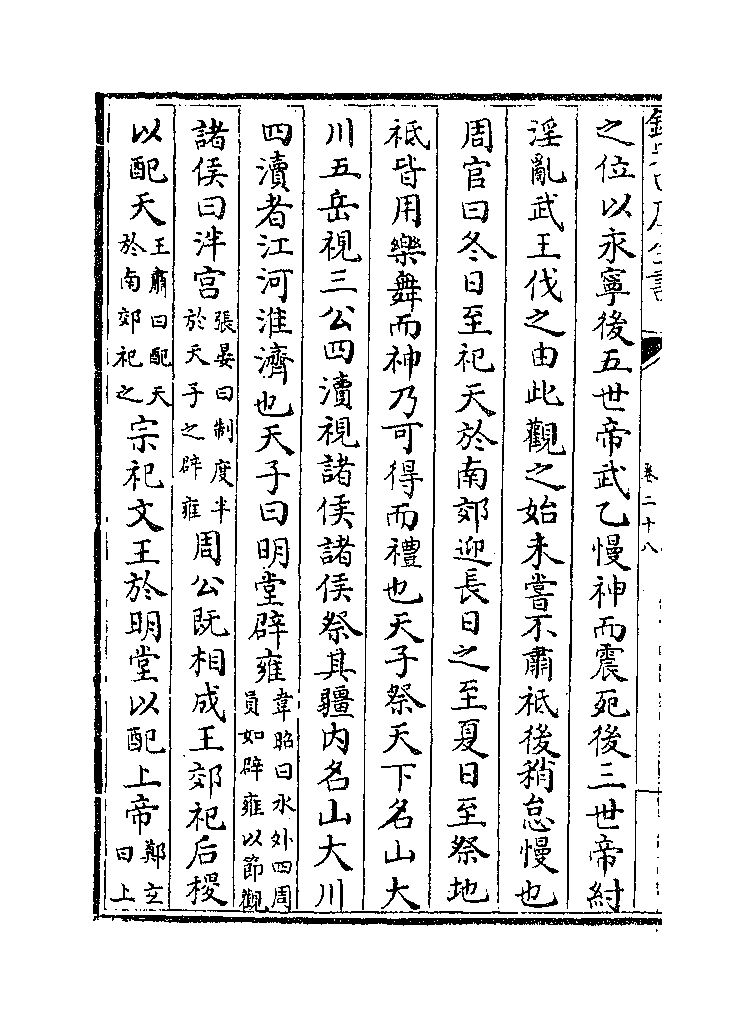 卷二十八
之位以永寧後五世帝武乙慢神而震死後三世帝紂
淫亂武王伐之由此觀之始未嘗不肅祗後稍怠慢也
周官曰冬日至祀天於南郊迎長日之至夏日至祭地
祗皆用樂舞而神乃可得而禮也天子祭天下名山大
川五岳視三公四瀆視諸侯諸侯祭其疆内名山大川
四瀆者江河淮濟也天子曰明堂辟雍韋昭曰水外四周員如辟雍以節觀
諸侯曰泮宫張晏曰制度半於天子之辟雍周公既相成王郊祀后稷
以配天王肅曰配天於南郊祀之宗祀文王於明堂以配上帝鄭玄曰上